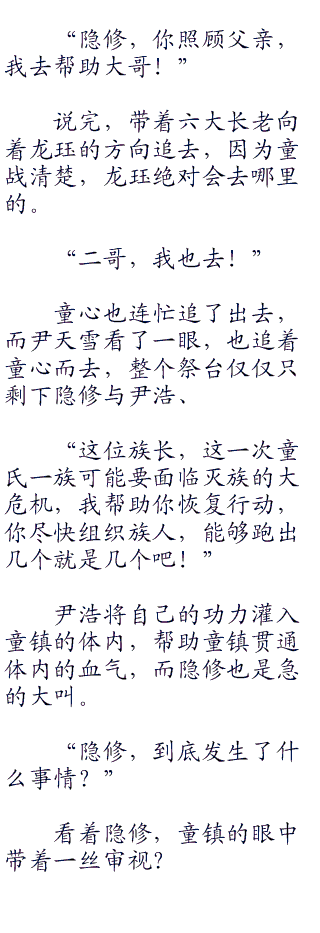 “隐修，你照顾父亲，
我去帮助大哥！”
说完，带着六大长老向
着龙珏的方向追去，因为童
战清楚，龙珏绝对会去哪里
的。
“二哥，我也去！”
童心也连忙追了出去，
而尹天雪看了一眼，也追着
童心而去，整个祭台仅仅只
剩下隐修与尹浩、
“这位族长，这一次童
氏一族可能要面临灭族的大
危机，我帮助你恢复行动，
你尽快组织族人，能够跑出
几个就是几个吧！”
尹浩将自己的功力灌入
童镇的体内，帮助童镇贯通
体内的血气，而隐修也是急
的大叫。
“隐修，到底发生了什
么事情？”
看着隐修，童镇的眼中
带着一丝审视？